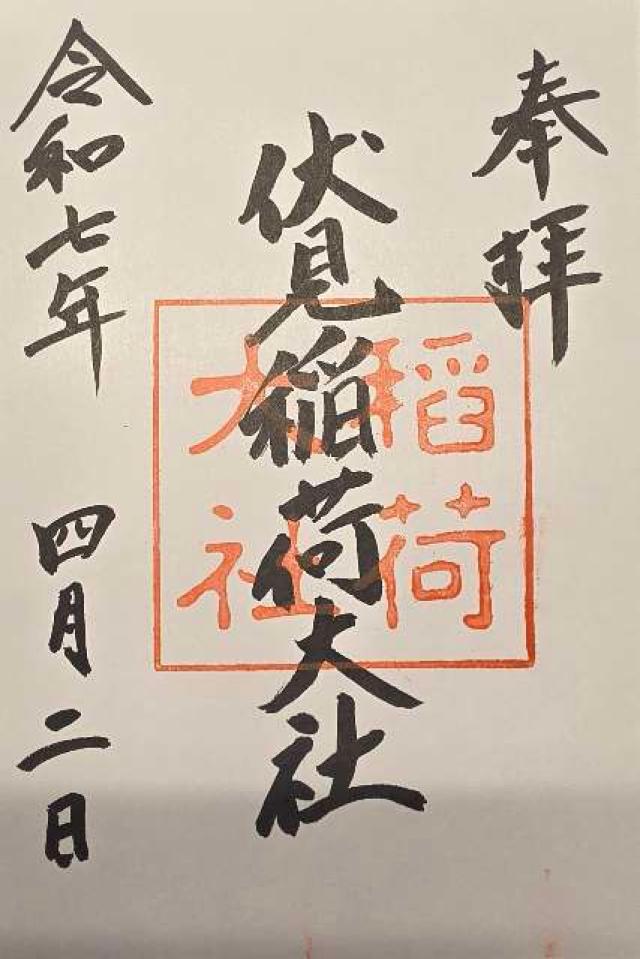 奉拝
伏見稲荷大社
稲荷
大社
令和七年 四月二日